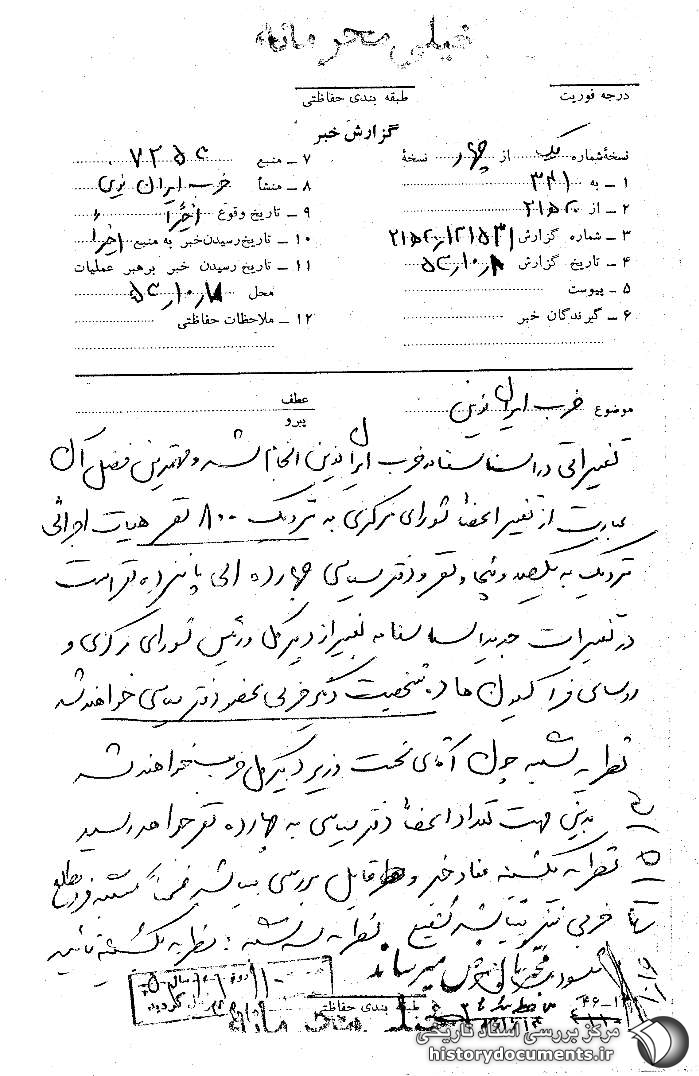 خیلی محرمانه
درجه فوریت
طبقه بندی حفاظتی
گزارش خبر
نسخهٔ شماره یک از چهار نسخهٔ
۱ ـ به ۳۴۱
۲ ـ از ۲۱ه۲۰
۳ ـ شماره گزارش
۴ ـ تاریخ گزارش
۵ ـ پیوست
۶ ـ گیرندگان خبر
۷ ـ منبع
۸ ـ منشأ حزب ایران نوین
۹ ـ تاریخ وقوع اخیراً
۱۰ ـ تاریخ رسیدن خبر به منبع اخیراً
۱۱ ـ تاریخ رسیدن خبر برهبر عملیات
محل
۱۲ ـ ملاحظات حفاظتی
موضوع حزب ایران نوین
عطف
پیرو
تغییراتی در اساسنامه حزب ایران نوین انجام شده و مهمترین فصل آن
عبارت از تغییر اعضاء شورای مرکزی به نزدیک ۸۰۰ نفر هیات اجرائی
نزدیک به یکصد و پنجاه نفر و دفتر سیاسی چهارده الی پانزده نفر است
در تغییرات جدید اساسنامه بغیر از دبیرکل و رئیس شورای مرکزی و
روسای فراکسیون ها ده شخصیت دیگر حزبی عضو دفتر سیاسی خواهند شد
نظریه شنبه چون آقای نخست وزیر دبیرکل حزب خواهند شد
بدین جهت تعداد اعضاء دفتر سیاسی به چهارده نفر خواهد رسید
نظریه یکشنبه مفاد خبر قابل بررسی میباشد ضمناً شنبه فرد مطلع
حزبی نیز میباشد شفیع نظریه سه شنبه : نظریه یکشنبه تائید
میگردد
بعرض میرساند
طبقه بندی حفاظتی
خیلی محرمانه
مرکز بررسی اسناد تاریخی
historydocuments.ir